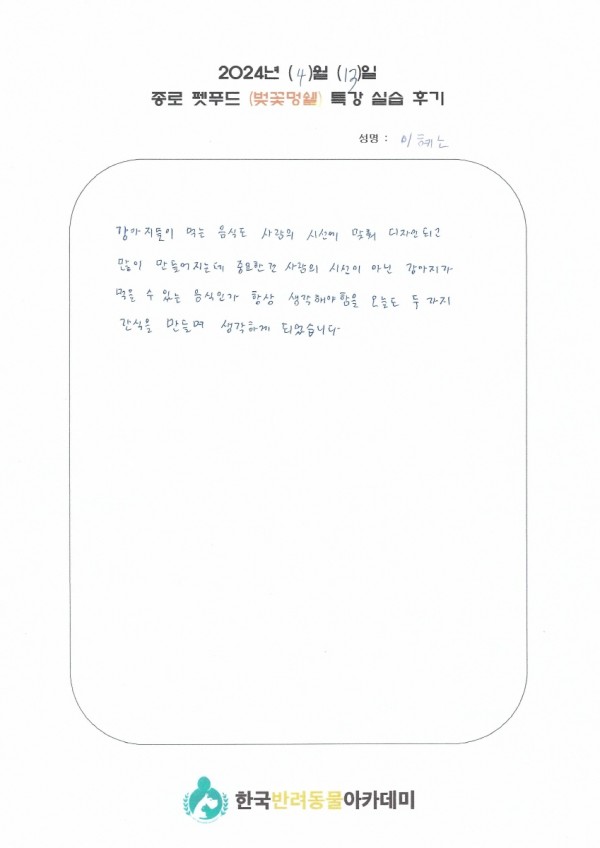 2024년 (4)월 (13)일
종로 펫푸드 (벚꽃멍쉘) 특강 실습 후기
성명 : 이혜노
강아지들이 먹는 음식도 사람의 시선에 맞춰 디자인되고
많이 만들어지는데 중요한건 사람의 시선이 아닌 강아지가
먹을 수 있는 음식인가 항상 생각해야함을 오늘도 두 가지
간식을 만들며 생각하게 되었습니다.
한국반려동물아카데미